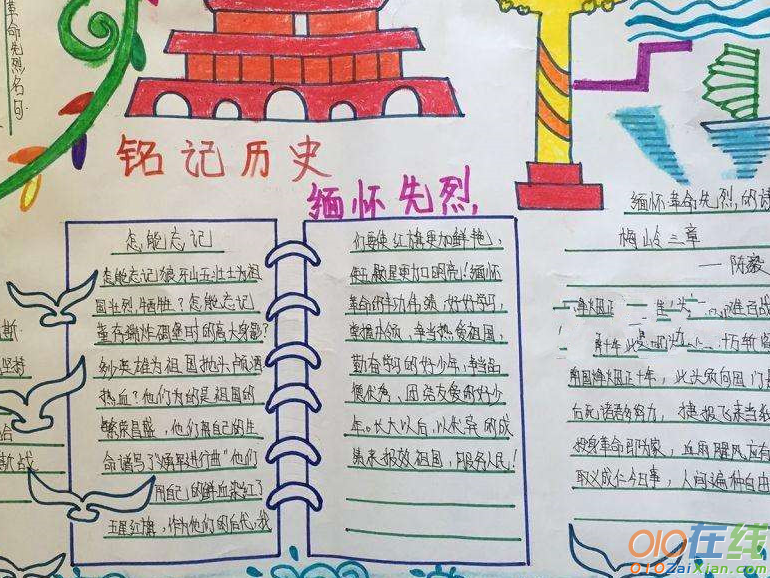 革命先烈名句
铭记历史
缅怀先烈
怎能忘记
怎能忘记狼牙山五壮士为祖
国壮烈牺牲？怎能忘记
董存瑞炸碉堡时的高大身影？
英雄为祖国抛头颅洒
热血？他们为的是祖国的
繁荣昌盛，他们用自己的生
命谱写了"义勇军进行曲"他们
用自己的鲜血染红了
五星红旗，作为他们的后代，我
们要使红旗更加鲜艳，
使五颗星更加明亮！缅怀
革命的丰功伟绩，好好学习，
掌握本领，争当热爱祖国，
勤奋学习的好少年，争当品
德优秀、团结友爱的好少
年。长大以后，以优异的成
绩来报效祖国，服务人民！
缅怀革命先烈的诗
梅岭三章
——陈毅
南国烽烟正十年，此头须向国门
后死诸君多努力，捷报飞来当纸
投身革命即为家，血雨腥风应有
取义成仁今日事，人间遍种自由
斯
坚持
斯战
010在线
010ZaiXian.com